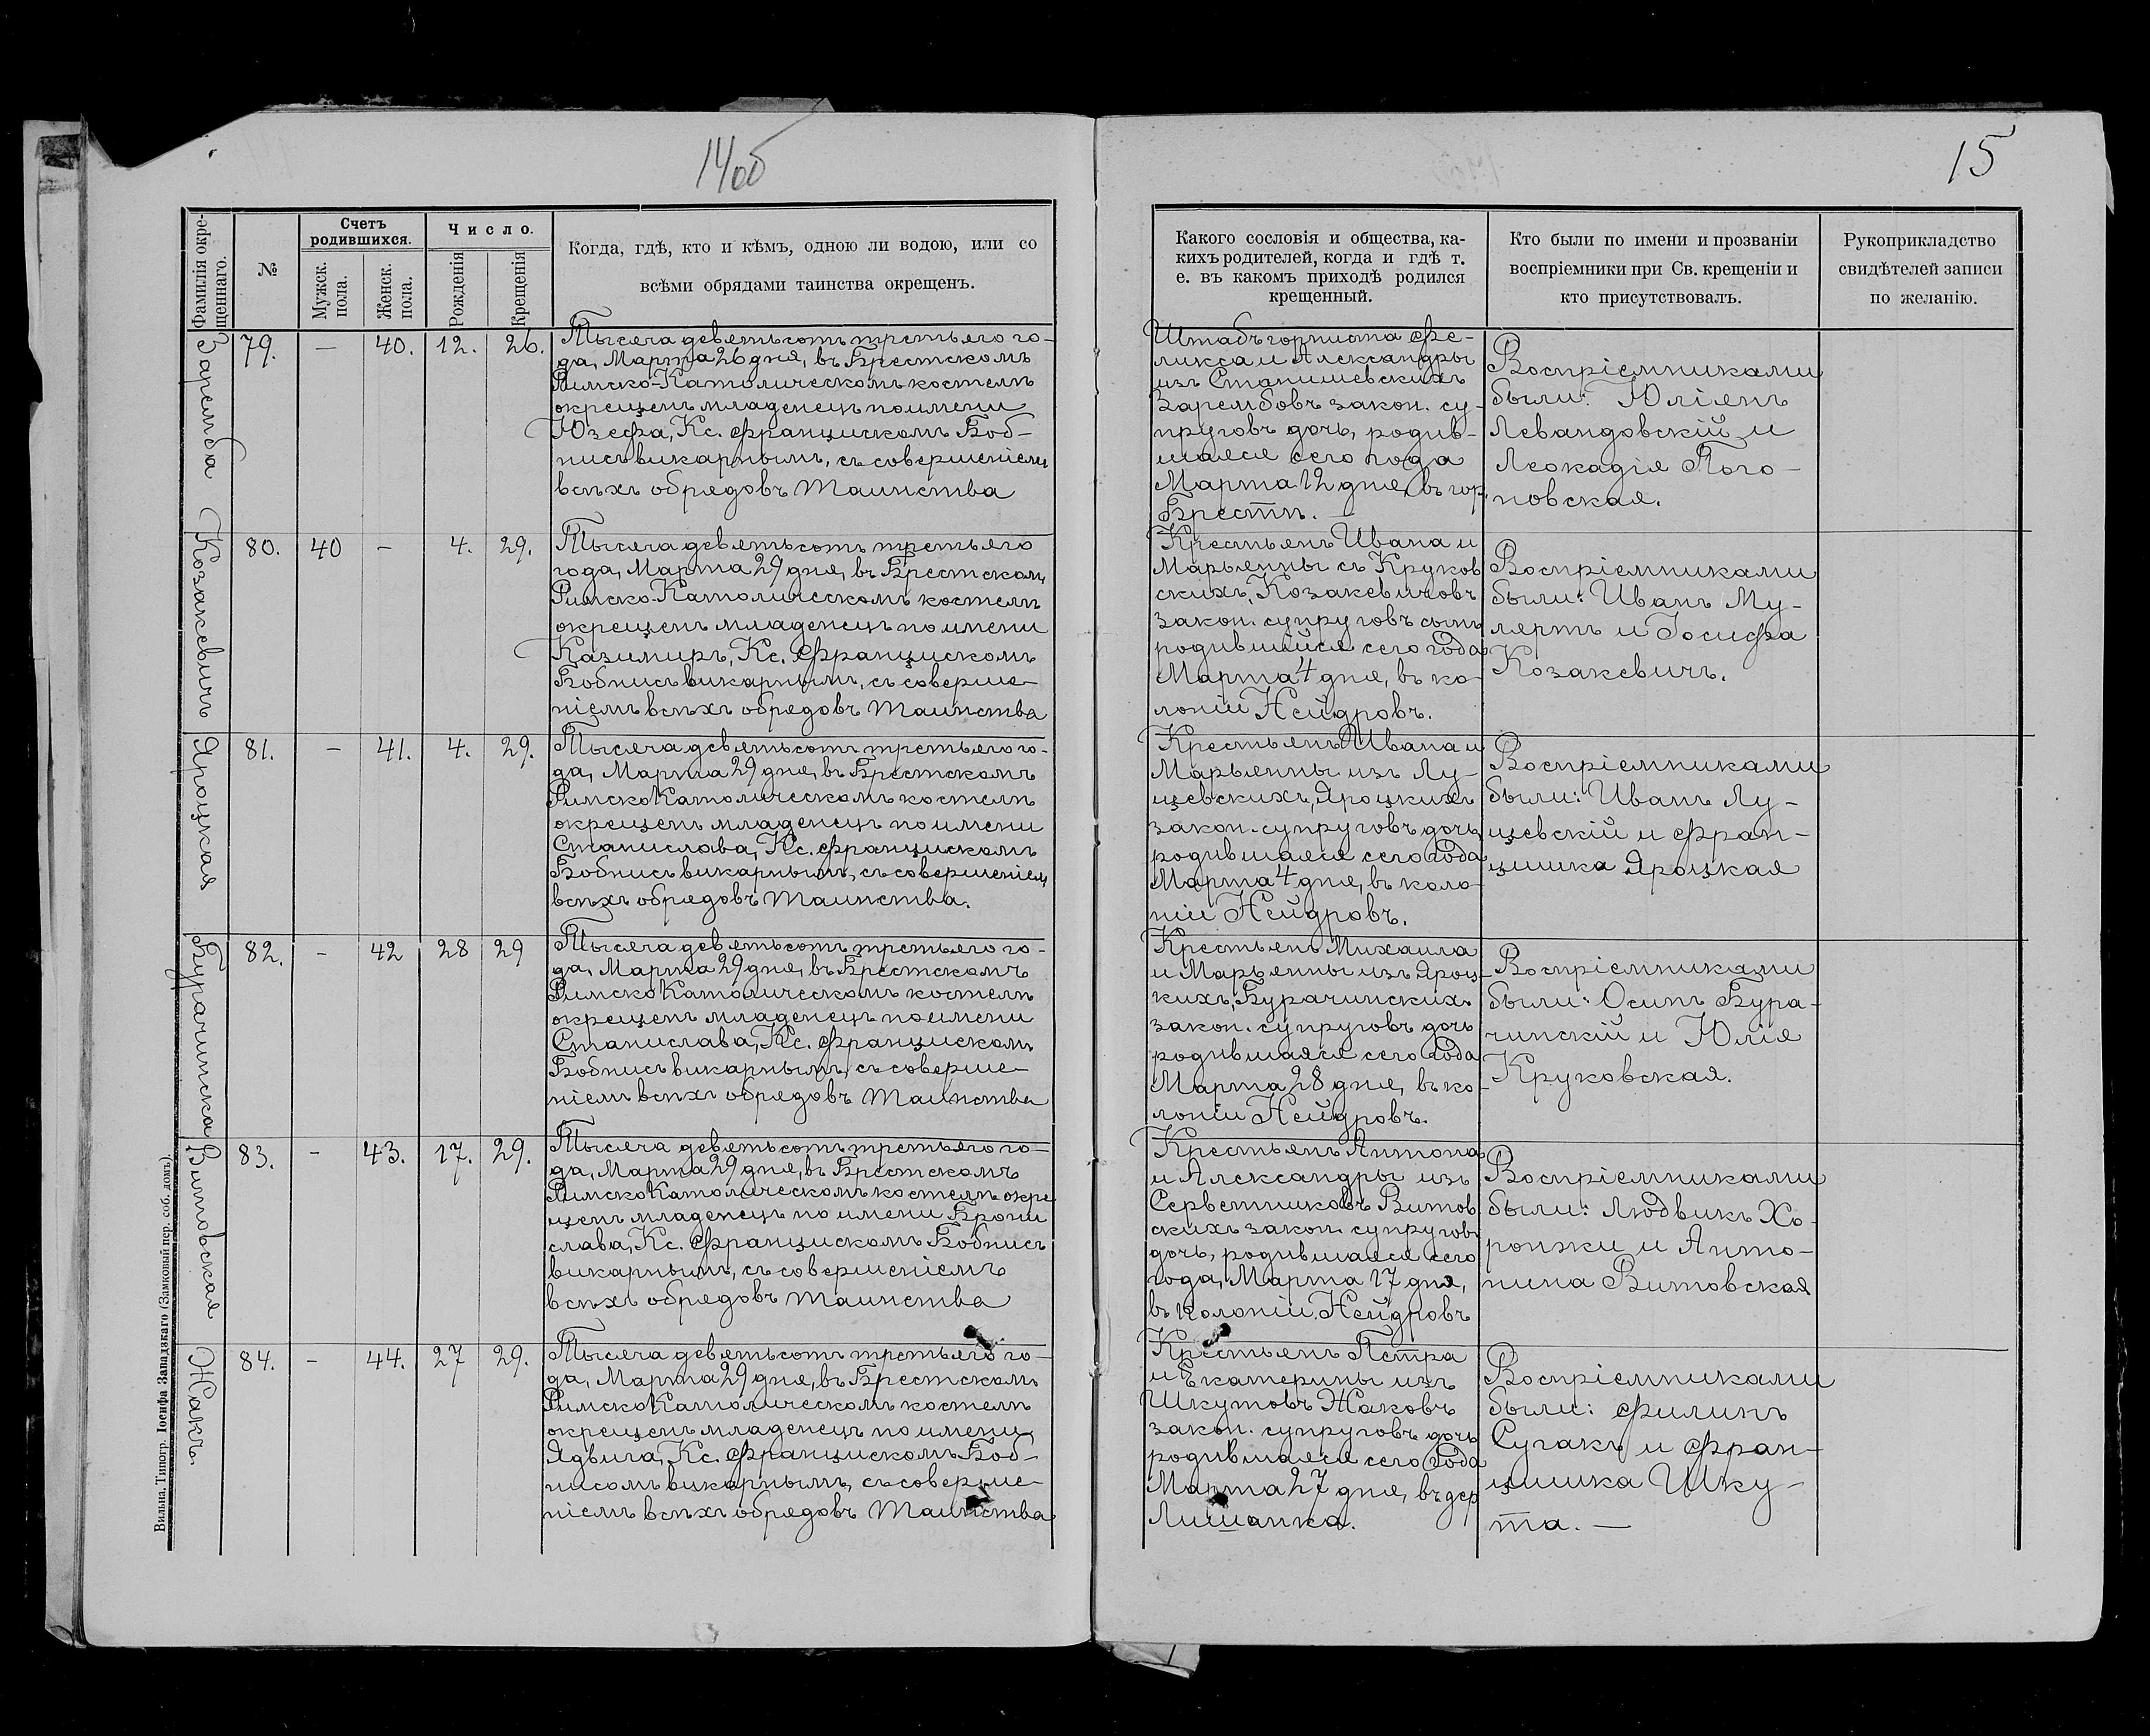 14об
15
Фамилія окре-
щеннаго.
№
Счетъ
родившихся.
Мужск.
пола.
Женск.
пола.
Число.
Рожденія
Крещенія
Когда, гдѣ, кто и кѣмъ, одною ли водою, или со
всѣми обрядами таинства окрещенъ.
Какого сословія и общества, ка-
кихъ родителей, когда и гдѣ т.
е. въ какомъ приходѣ родился
крещенный.
Кто были по имени и прозваніи
воспріемники при Св. крещеніи и
кто присутствовалъ.
Рукоприкладство
свидѣтелей записи
по желанію.
Заремба
79. — 40. 12. 26.
Тысяча девятьсотъ третьяго го-
да, Марта 26 дня, въ Брестскомъ
Римско-Католическомъ костелѣ
окрещенъ младенецъ по имени
Юзефа, Кс. Францискомъ Боб-
нисъ викарнымъ, съ совершеніем
всѣхъ обрядовъ таинства
Штабъ горниста Фе-
ликса и Александры
изъ Станишевскихъ
Зарембовъ закон. су-
пруговъ дочь, родив-
шаяся сего года
Марта 12 дня, въ гор.
Брестѣ. —
Воспріемниками
были: Юліянъ
Левандовскій и
Леокадія Пого-
новская.
Козакевичъ
80. 40 — 4. 29.
Тысяча девятьсотъ третьяго
года, Марта 29 дня, въ Брестском
Римско-Католическомъ костелѣ
окрещенъ младенецъ по имени
Казимиръ, Кс. Францискомъ
Бобнисъ викарнымъ, съ соверше-
ніемъ всѣхъ обрядовъ таинства
Крестьянъ Ивана и
Марьянны съ Круков
скихъ, Козакевичовъ
закон. супруговъ сынъ
родившійся сего года
Марта 4 дня, въ ко-
лоніи Нейдровъ.
Воспріемниками
были: Иванъ Му-
ляртъ и Іосифа
Козакевичъ.
Яроцкая
81. — 41. 4. 29.
Тысяча девятьсотъ третьяго го-
да, Марта 29 дня, въ Брестскомъ
Римско Католическомъ костелѣ
окрещенъ младенецъ по имени
Станислава, Кс. Францискомъ
Бобнисъ викарнымъ, съ совершеніем
всѣхъ обрядовъ таинства.
Крестьянъ Ивана и
Марьянны изъ Лу-
щевскихъ, Яроцкихъ
закон. супруговъ дочь
родившаяся сего года
Марта 4 дня, въ коло-
ніи Нейдровъ.
Воспріемниками
были: Иванъ Лу-
щевскій и Фран-
цишка Яроцкая
Бурачинская
82. — 42 28 29
Тысяча девятьсотъ третьяго го-
да, Марта 29 дня, въ Брестскомъ
Римско Католическомъ костелѣ
окрещенъ младенецъ по имени
Станислава, Кс. Францискомъ
Бобнисъ викарнымъ, съ соверше-
ніемъ всѣхъ обрядовъ таинства
Крестьянъ Михаила
и Марьянны изъ Яроц-
кихъ, Бурачинскихъ
закон. супруговъ дочь
родившаяся сего года
Марта 28 дня, въ ко-
лоніи Нейдровъ.
Воспріемниками
были: Осипъ Бура-
чинскій и Юлія
Круковская.
Витовская
83. — 43. 17. 29.
Тысяча девятьсотъ третьяго го-
да, Марта 29 дня, въ Брестскомъ
Римско Католическомъ костелѣ окре
щенъ младенецъ по имени Брони
слава, Кс. Францискомъ Бобнисъ
викарнымъ, съ совершеніемъ
всѣхъ обрядовъ таинства
Крестьянъ Антона
и Александры изъ
Серветниковъ Витов
скихъ закон. супруговъ
дочь, родившаяся сего
года, Марта 17 дня,
въ колоніи Нейдровъ
Воспріемниками
были: Людвикъ Хо-
ронжи и Анто-
нина Витовская
Жакъ.
84. — 44. 27 29.
Тысяча девятьсотъ третьяго го-
да, Марта 29 дня, въ Брестскомъ
Римско Католическомъ костелѣ
окрещенъ младенецъ по имени
Ядвига, Кс. Францискомъ Боб-
нисомъ викарнымъ, съ соверше-
ніемъ всѣхъ обрядовъ таинства
Крестьянъ Петра
и Екатерины изъ
Шкутовъ Жаковъ
закон. супруговъ дочь
родившаяся сего года
Марта 27 дня, въ дер
Лишанка.
Воспріемниками
были: Филипъ
Сугакъ и Фран-
цишка Шку-
та. —
Вильна. Типогр. Іосифа Завадзкаго (Замковый пер. соб. домъ).